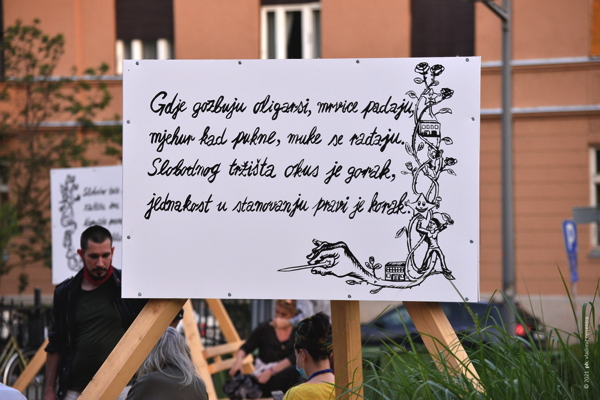 Gdje gozbuju oligarsi, mrvice padaju,
mjehur kad pukne, muke se rađaju.
Slobodnog tržišta okus je gorak,
jednakost u stanovanju pravi je korak.